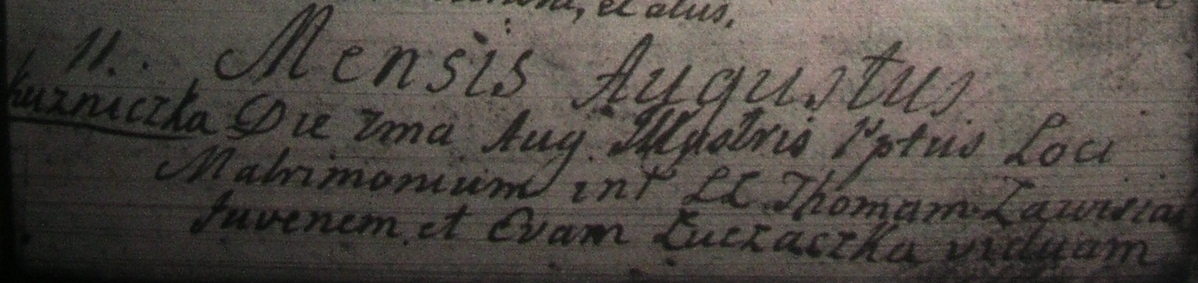 et alius.
11. Mensis Augustus
Kuzniczka Die 2ma Aug. Illustris Pptus Loci
Matrimonium int LL. Thomam Zawisiak
Iuvenem et Evam Łuczaczka viduam